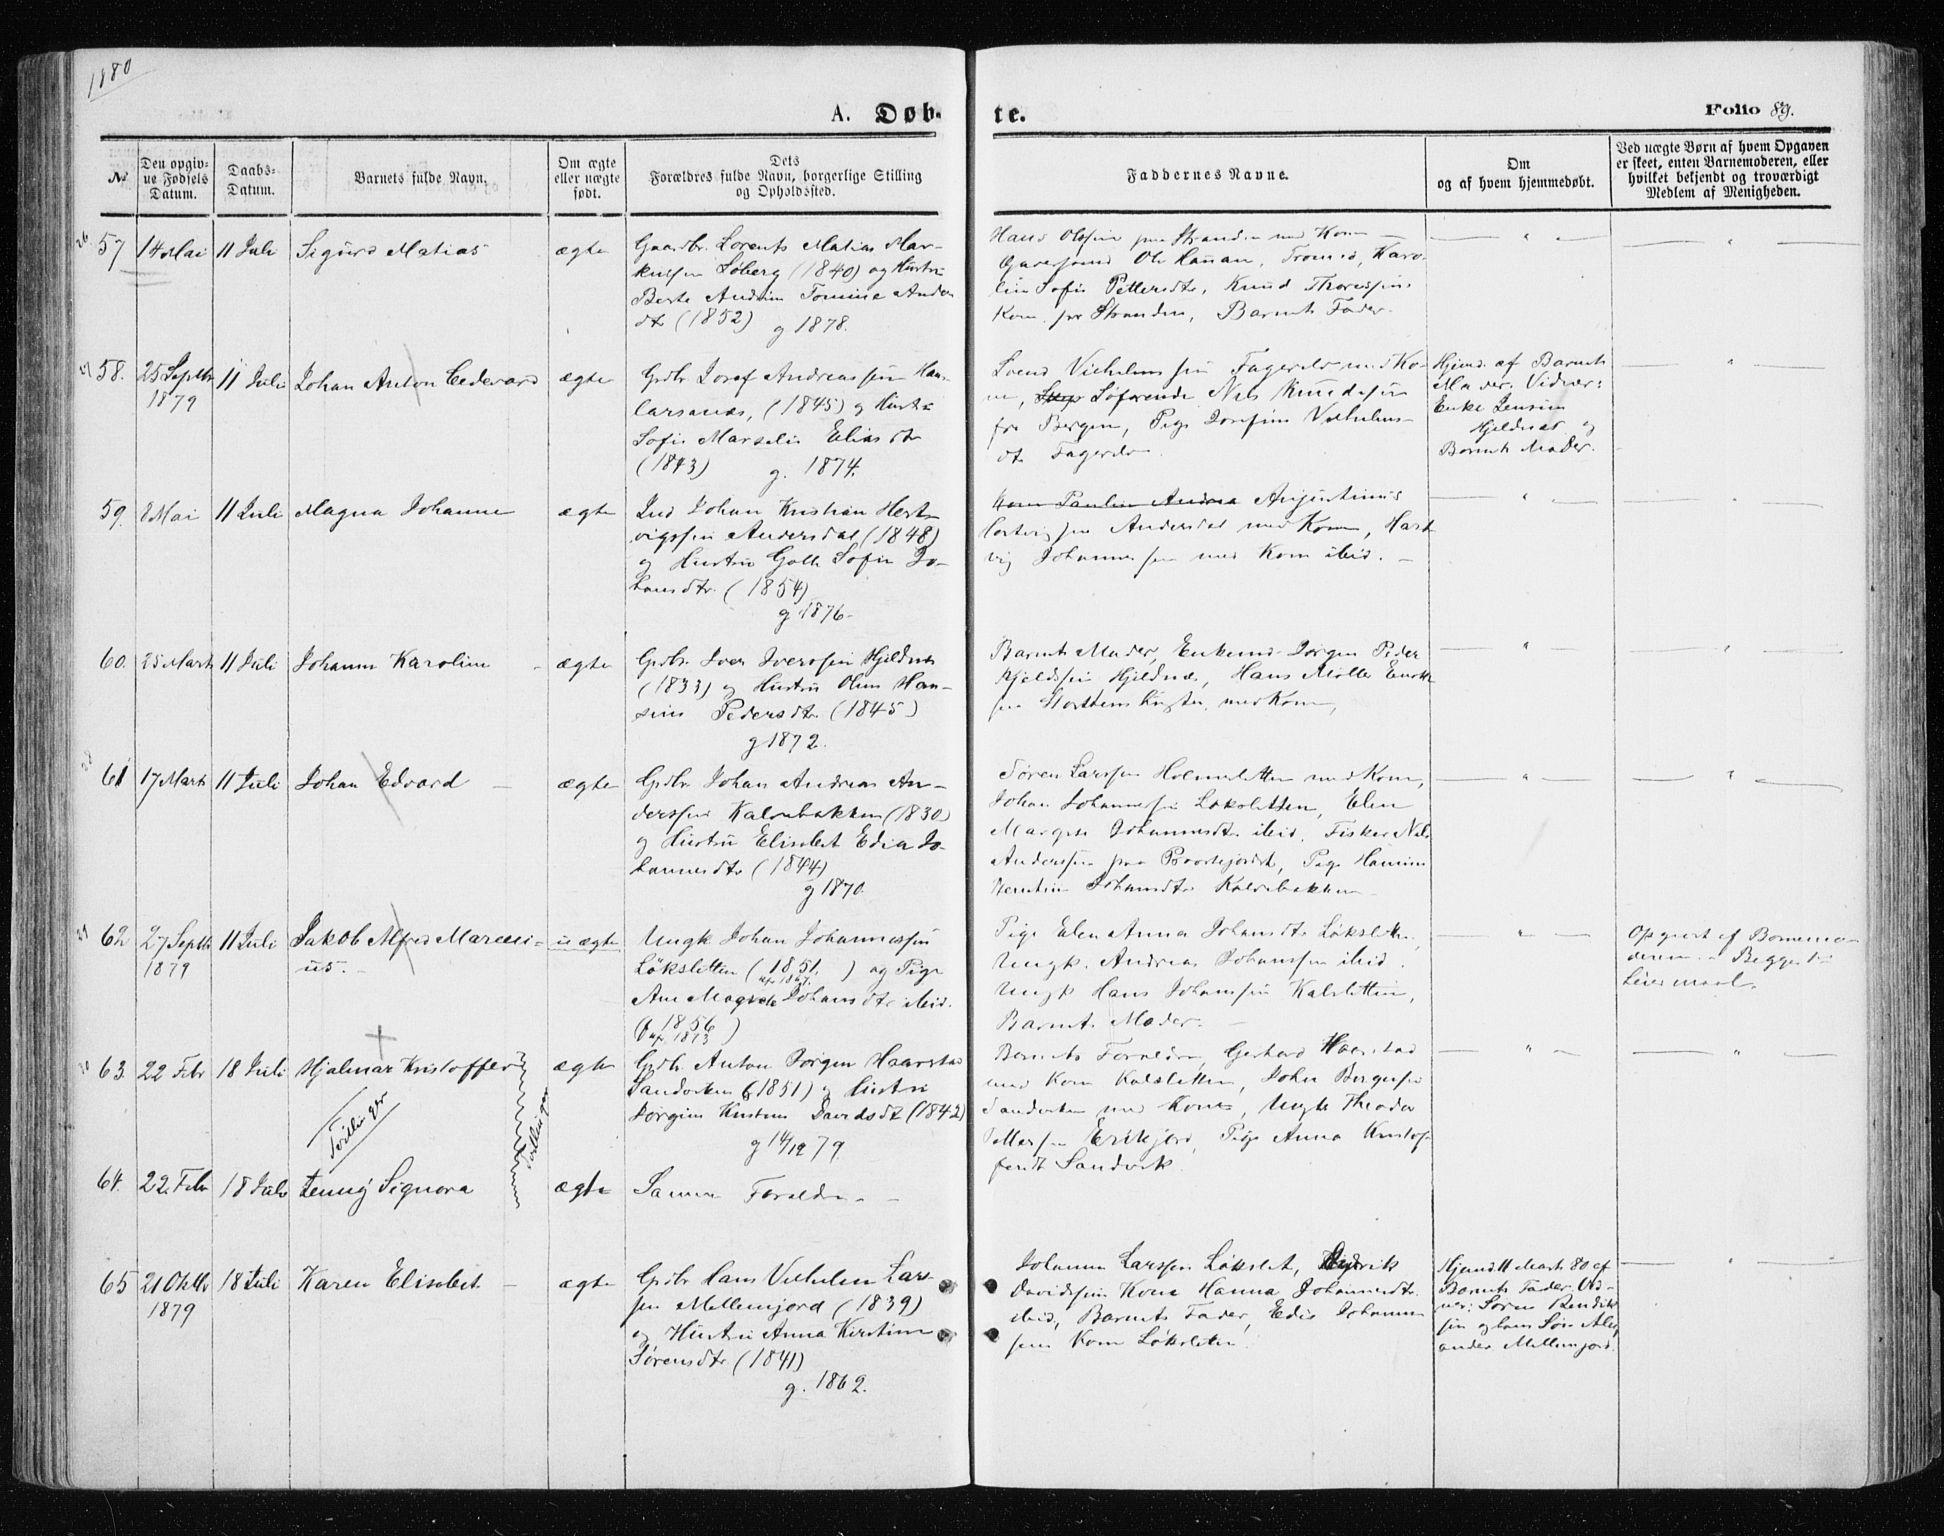 1880
A. Døb-
te.
Folio 89.
No
Den opgiv-
ne Fødsels
Datum.
Daabs-
Datum.
Barnets fulde Navn.
Om ægte
eller uægte
født.
Dets
Forældres fulde Navn, borgerlige Stilling
og Opholdssted.
Faddernes Navne.
Om
og af hvem hjemmedøbt.
Ved uægte Børn af hvem Opgaven
er skeet, enten Barnemoderen, eller
hvilket bekjendt og troværdigt
Medlem af Menigheden.
26
57 14 Mai 11 Juli Sigurd Matias ægte
Gaardbr. Lorents Matias Mar-
kussen Søberg (1840) og Hustru
Berte Andrea Tomine Anders
dtr (1852) g 1878.
Hans Olsen paa Stranden med Kone
Ole Hansan, Tromsø, Karo-
line Sofie Pettersdtr, Knud Thoressens
Kone paa Stranden, Barnets Fader.
58. 25 Septbr 11 Juli Johan Anton Cedevard ægte
1879
Grdbr Josef Andreassen Han-
larsanæs, (1845) og Hustru
Sofie Marselie Eliasdtr
(1843) g. 1874.
Svend Vilhelmsen Fagereln med Ko-
ne, Søfarende Nils Knudsen
fra Bergen, Pige Josefine Vilhelms-
dtr
Hjemd. af Barnets
Moder. Vidner:
Enke Jensine
Hjeldnæs og
Barnets Moder.
59. 8 Mai 11 Juli Magna Johanne ægte
Ind Johan Kristian Hert-
vigssen Andersdal (1848)
og Hustru Golla Sofie Jo-
hansdtr. (1854)
g 1876.
Kone Pauline Andrea Augustinus
Hartvigsen Andersdal med Kone, Hart
vig Johannessen med Kone ibid.
60. 25 Marts 11 Juli Johanne Karoline ægte
Grdbr. Iver Iversen Hjeldnæs
(1833) og Hustru Oline Han-
sine Pedersdtr (1845)
g 1872.
Barnets Moder, Enkemd Jørgen Peder
Kjeldsen Hjeldnæs, Hans Møller Enok
sen med Kone,
28
61 17 Marts 11 Juli Johan Edvard ægte
Grdbr Johan Andreas An-
dersen Kalvebakken (1830)
og Hustru Elisabet Edia Jo-
hannesdtr (1844)
g 1870.
Søren Larssen Holmesletten med Kone,
Johan Johannessen Løksletten, Elen
Margrete Johannesdtr ibid. Fisker Nils
Anderssen paa Pige Hansine
Johansdtr Kalvebakken
29
62 27 Septbr 11 Juli Jakob Alfred Marcus- uægte
1879 us.
Ungk Johan Johannessen
Løksletten (1851) og Pige
Ane Magrete Johansdtr ibid.
(1856)
Pige Elen Anna Johansdtr Løksletten,
Ungk. Andreas Johanssen ibid.
Ungk Hans Johanssen Kalsletten,
Barnets Moder.
Opgivet af Barnemo-
deren. Begges 1ste
Leiermaal.
30
63. 22 Febr 18 Juli Hjalmar Kristoffer ægte
Tvillinger
Tvillinger
Grdbr. Anton Jørgen Haarstad
Sandviken (1851) og Hustru
Jørgine Kristine Davidsdtr (1842)
g 14/12 79.
Barnets Forældre, Gerhard Haarstad
med Kone Kalsletten, Johan Bergesen
Sandviken med Kone, Ungk Theodor
Pettersen Erikjord, Pige Anna Kristof
fersdt Sandvik.
64. 22 Febr 18 Juli Jenny Signora ægte
Samme Forældre
65 21 Oktbr 18 Juli Karen Elisabet ægte
1879
Grdbr Hans Vilhelm Lars-
sen Mellemjord (1839)
og Hustru Anna Kirstine
Sørensdtr (1841)
g. 1862.
Johannes Larssen Løkslet, Hendrik
Davidssen Kone Hanna Johannesdtr
ibid, Barnets Fader, Edis Johannes
sens Kone Løksletten.
Hjemd 11 Marts 80 af
Barnets Fader. Vid-
ner: Søren Bendikt
sen og hans Søn Alex
ander Mellemjord.